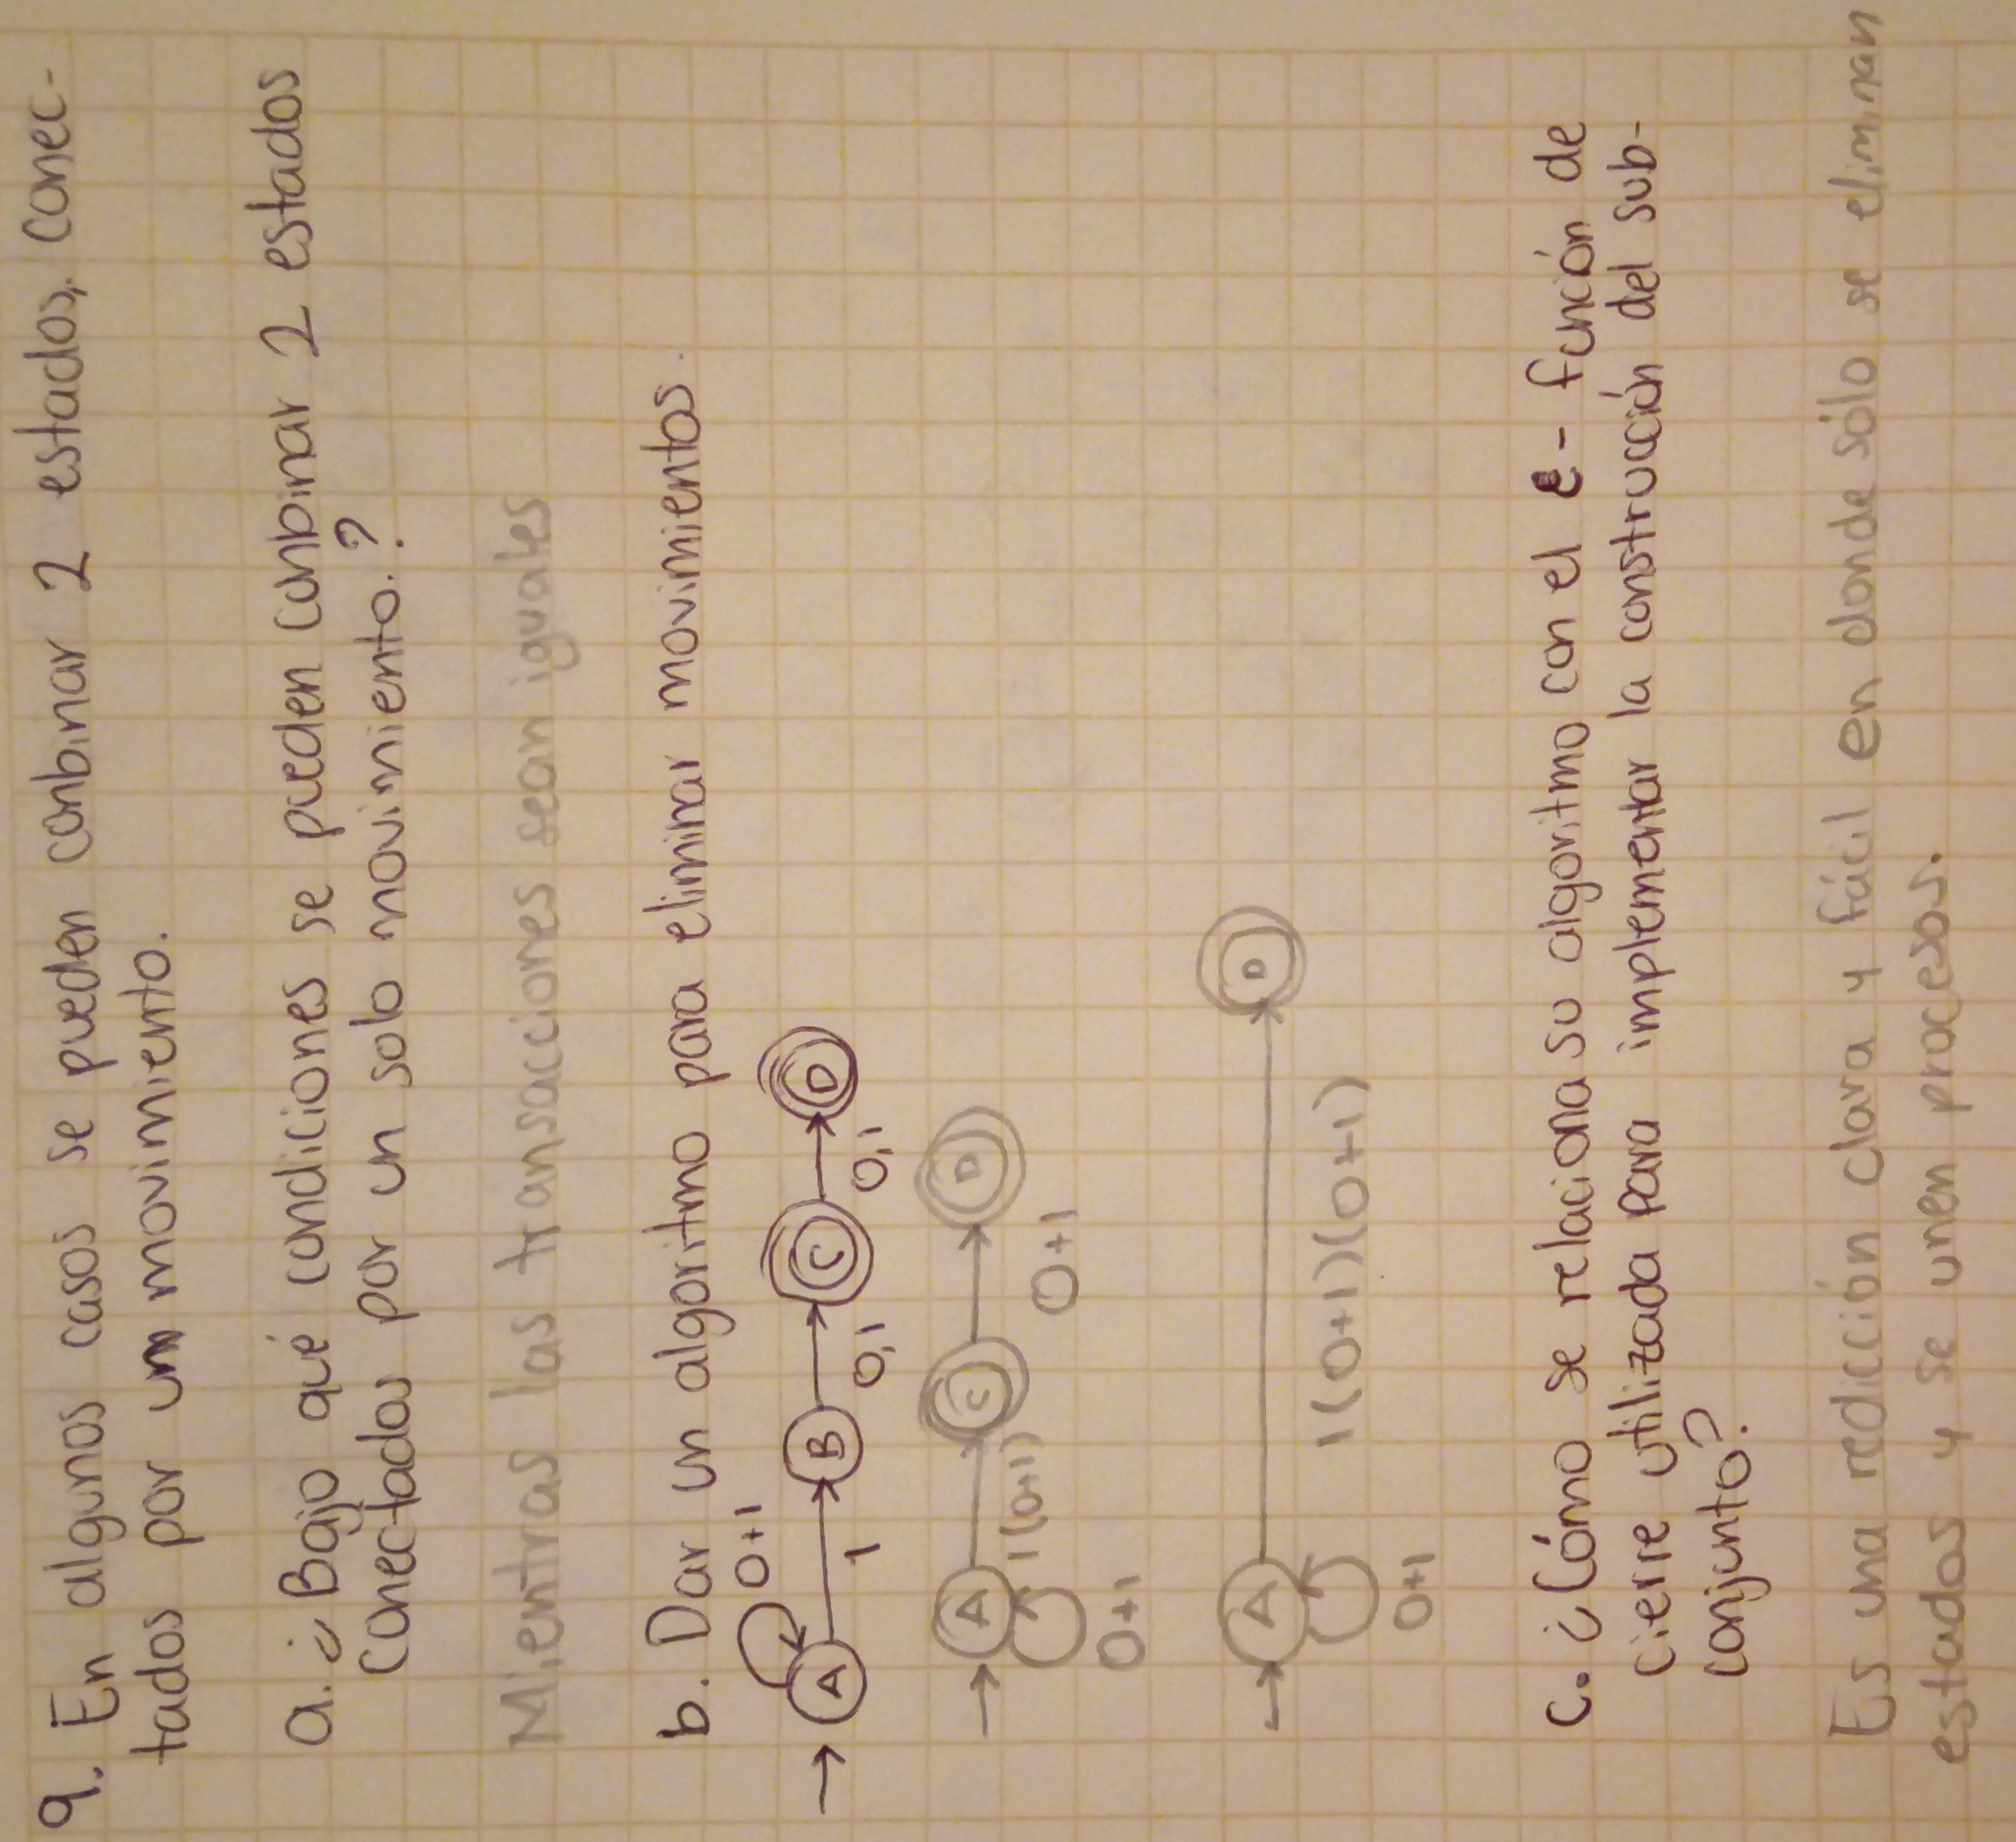 9. En algunos casos se pueden conbinar 2 estados, conec-
tados por un movimiento.
a. ¿Bajo qué condiciones se pueden conbinar 2 estados
conectados por un solo movimiento.?
Mientras las transacciones sean iguales
b. Dar un algoritmo para eliminar movimientos.
0+1
A B C D
1 0,1 0,1
A C D
1(0+1) 0+1
0+1
A D
1(0+1)(0+1)
0+1
c. ¿Cómo se relaciona su algoritmo con el ε- función de
cierre utilizada para implementar la construcción del sub-
conjunto?
Es una redicción clara y fácil en donde sólo se eliminan
estados y se unen procesos.